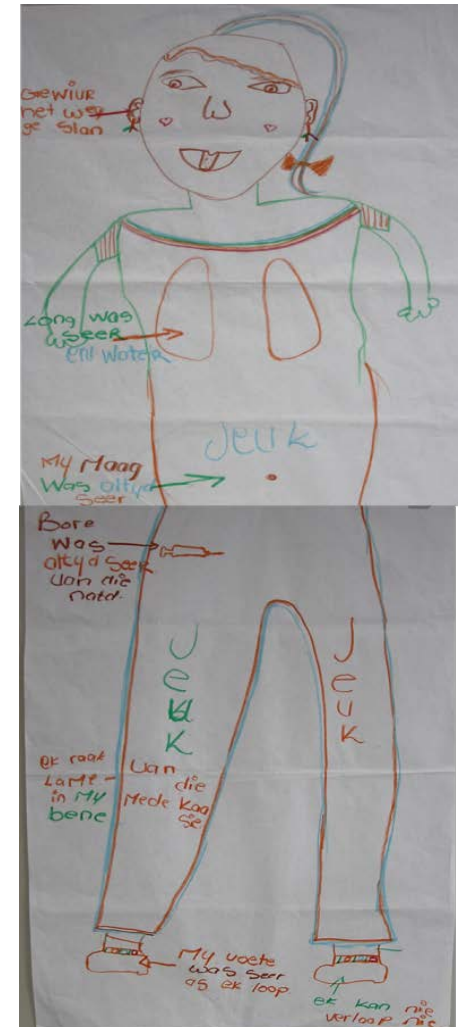 Gewiur
het weg
ge slan
Long was
seer
en water
Jeuk
My Maag
was altyd
seer
Bore
was
altyd seer
van die
nald.
Jeuk
Jeuk
ek raak
Lame
in my
bene
van die
Mede kaa
se
My voete
was seer
as ek loop
ek kan nie
verloop nie